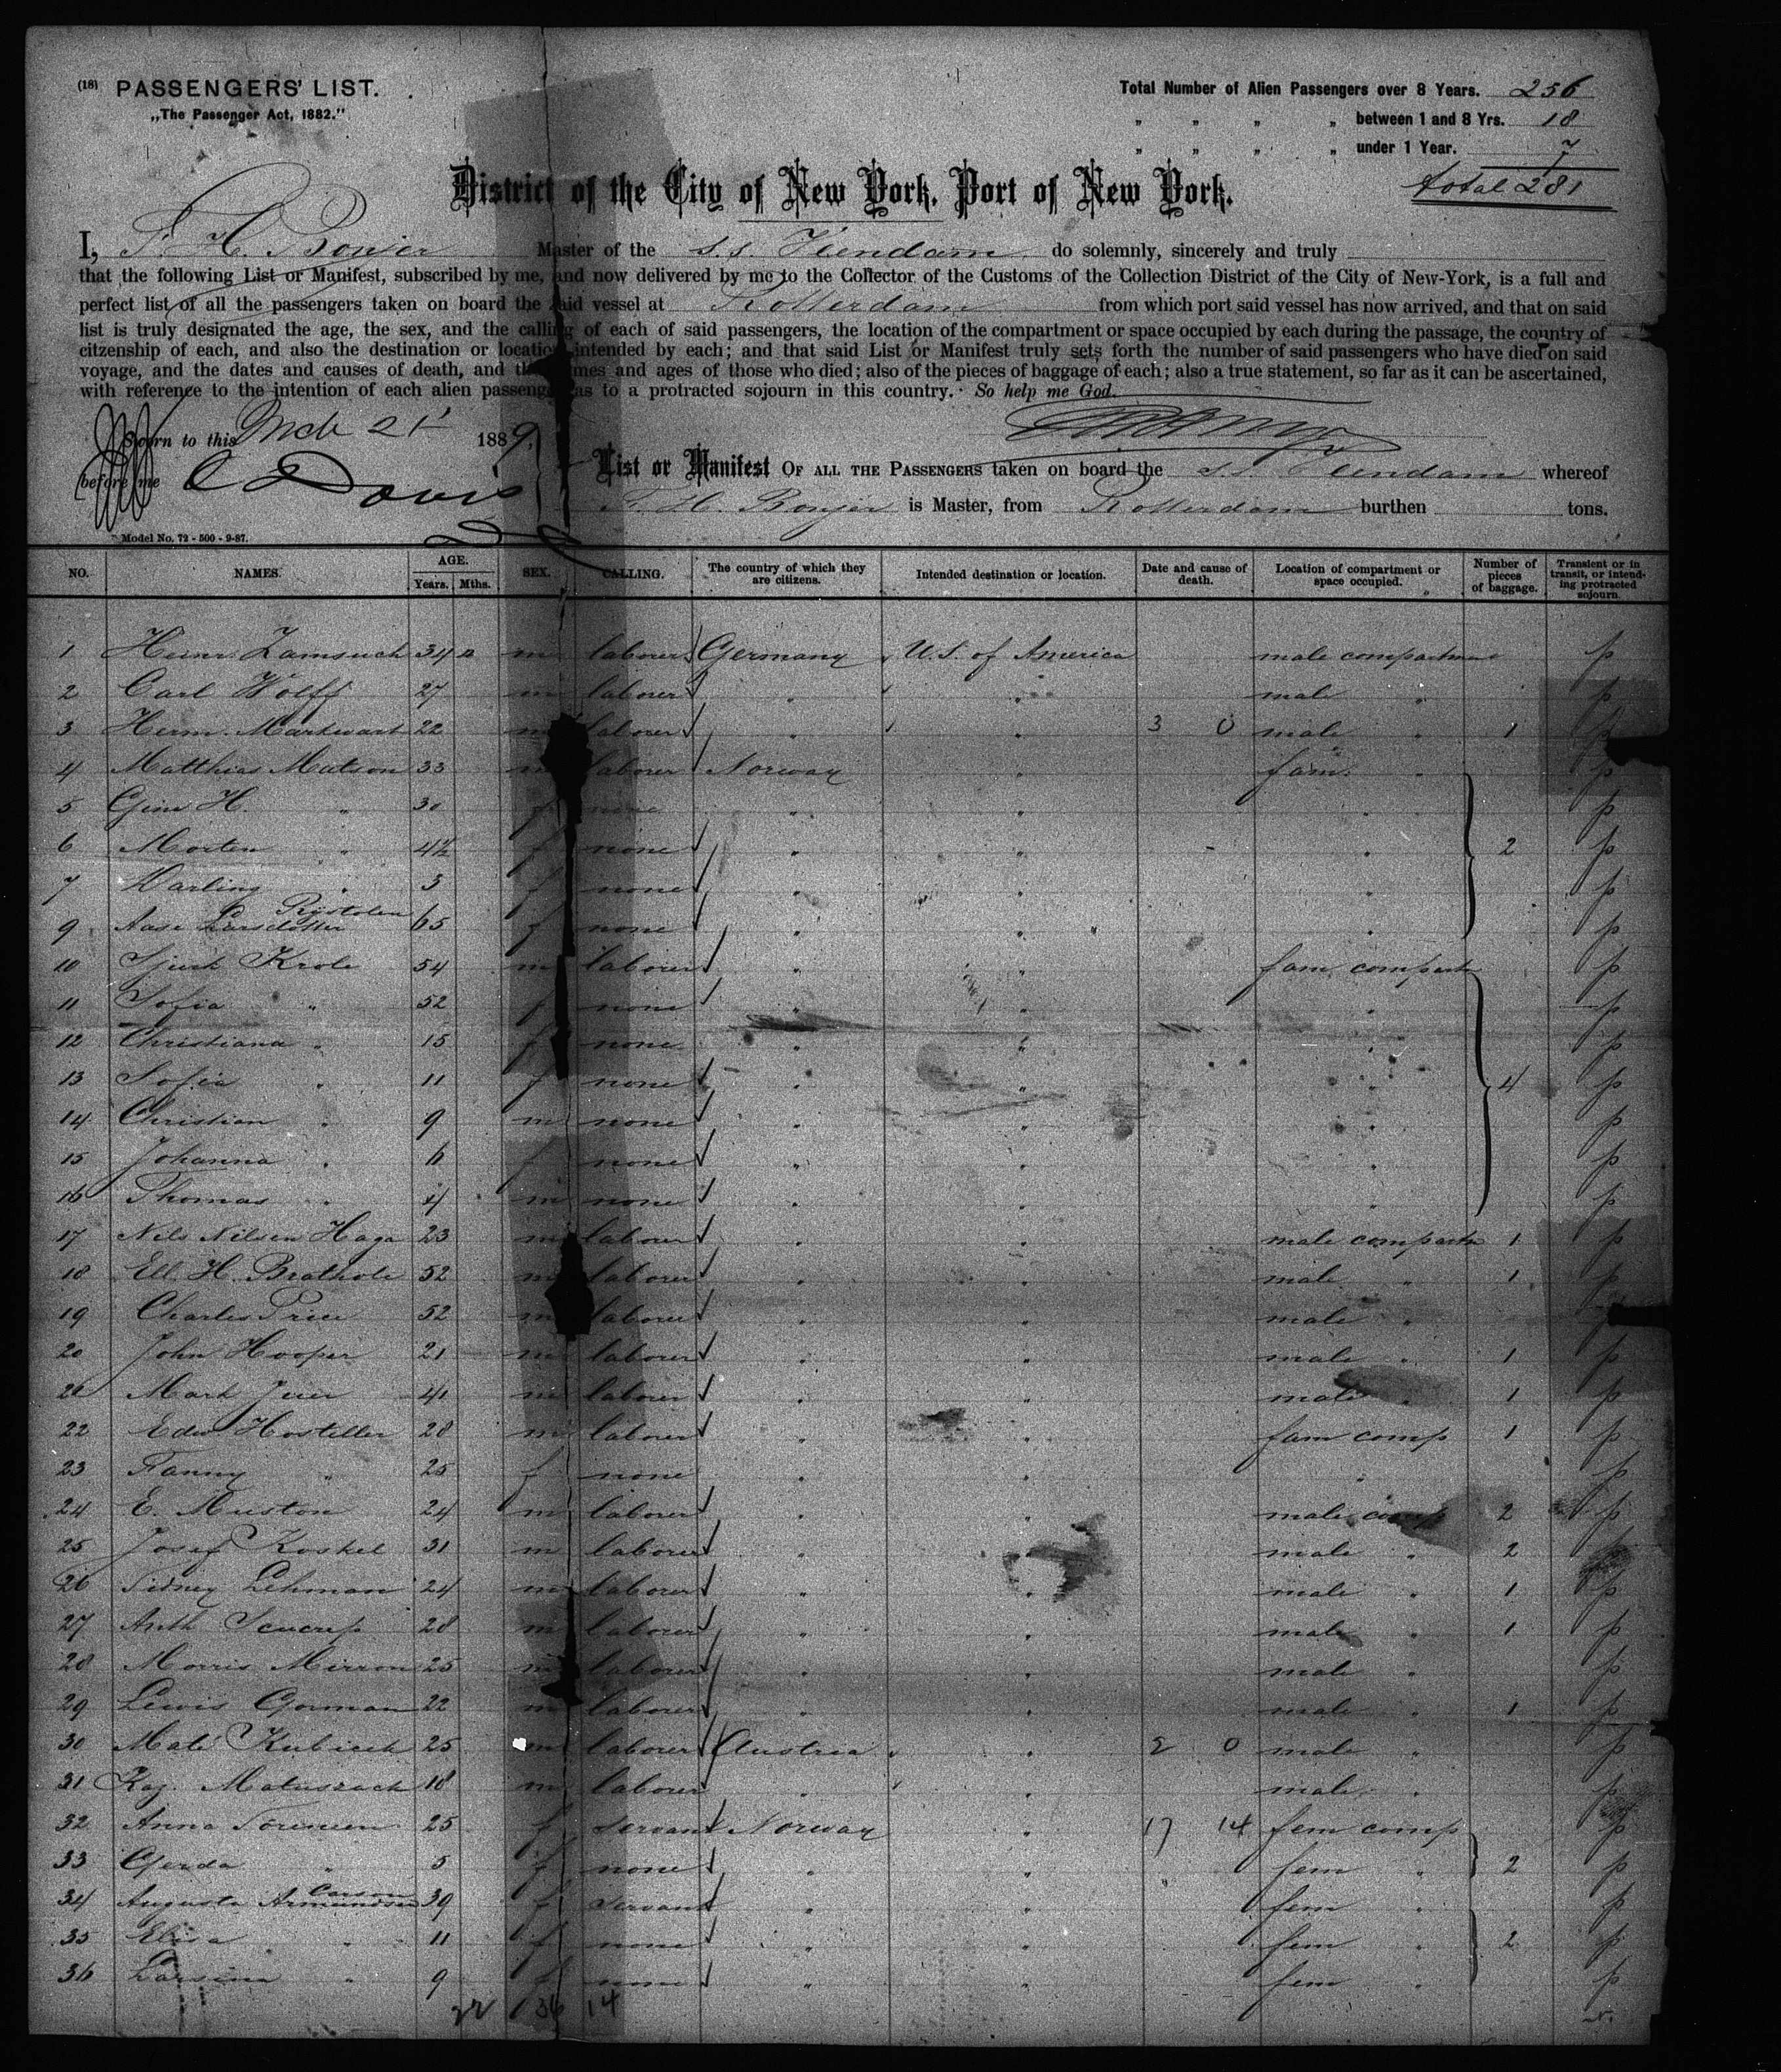 (18) PASSENGERS' LIST.
„The Passenger Act, 1882."
Total Number of Alien Passengers over 8 Years. 256
„ „ „ „ between 1 and 8 Yrs. 18
„ „ „ „ under 1 Year. 7
total 281
District of the City of New York, Port of New York.
I, F. H. Bonjer Master of the s.s. Veendam do solemnly, sincerely and truly
that the following List or Manifest, subscribed by me, and now delivered by me to the Collector of the Customs of the Collection District of the City of New-York, is a full and
perfect list of all the passengers taken on board the said vessel at Rotterdam from which port said vessel has now arrived, and that on said
list is truly designated the age, the sex, and the calling of each of said passengers, the location of the compartment or space occupied by each during the passage, the country of
citzenship of each, and also the destination or location intended by each; and that said List or Manifest truly sets forth the number of said passengers who have died on said
voyage, and the dates and causes of death, and the names and ages of those who died; also of the pieces of baggage of each; also a true statement, so far as it can be ascertained,
with reference to the intention of each alien passenger as to a protracted sojourn in this country. So help me God.
Sworn to this Mch 21 1889
before me C Davis
List or Manifest OF ALL THE PASSENGERS taken on board the s.s. Veendam whereof
F. H. Bonjer is Master, from Rotterdam burthen tons.
Model No. 72 - 500 - 9-87.
NO. NAMES. AGE. Years. Mths. SEX. CALLING. The country of which they are citizens. Intended destination or location. Date and cause of death. Location of compartment or space occupied. Number of pieces of baggage. Transient or in transit, or intending protracted sojourn.
1 Heinr. 34 m laborer Germany U.S. of America male compartment p
2 Carl Wolff 27 m laborer „ „ male „ p
3 Herm. Markwart 22 m laborer „ „ 3 0 male „ 1 p
4 Matthias Matson 33 m laborer Norway „ fam. „ p
5 Gine H. „ 30 f none „ „ „ p
6 Morten „ 4½ f none „ „ „ 2 p
7 Marling „ 3 f none „ „ „ p
9 Aase Larsdotter 65 f none „ „ „ p
10 Sjurh Krole 54 m laborer „ „ fam. compartm p
11 Sofia „ 52 f none „ „ „ p
12 Christiana „ 15 f none „ „ „ p
13 Sofia „ 11 f none „ „ „ 4 p
14 Christian „ 9 m none „ „ „ p
15 Johanna „ 6 f none „ „ „ p
16 Thomas „ 4 m none „ „ „ p
17 Nils Nilsen Haga 23 m laborer „ „ male compartm 1 p
18 Ell. H. Brathole 52 m laborer „ „ male „ 1 p
19 Charles Price 52 m laborer „ „ male „ p
20 John Hooper 21 m laborer „ „ male „ 1 p
21 Mark 41 m laborer „ „ male „ 1 p
22 Edw Hosteller 28 m laborer „ „ fam comp 1 p
23 Fanny „ 25 f none „ „ „ p
24 E. Muston 24 m laborer „ „ male comp 2 p
25 Josef Koskel 31 m laborer „ „ male „ 2 p
26 Sidney Lehman 24 m laborer „ „ male „ 1 p
27 Anth 28 m laborer „ „ male „ 1 p
28 Morris Mirron 25 m laborer „ „ male „ p
29 Lewis Gorman 22 m laborer „ „ male „ 1 p
30 Mate Kubicek 25 m laborer Austria „ 2 0 male „ p
31 Kaz. Matuszack 18 m laborer „ „ male „ p
32 Anna Sorensen 25 f servant Norway „ 17 14 fem comp p
33 Gerda „ 5 f none „ „ fem „ 2 p
34 Augusta Armundsen Carson 39 f servant „ „ fem „ p
35 Elisa „ 11 f none „ „ fem „ 2 p
36 Larsine „ 9 f none „ „ fem „ p
22 36 14